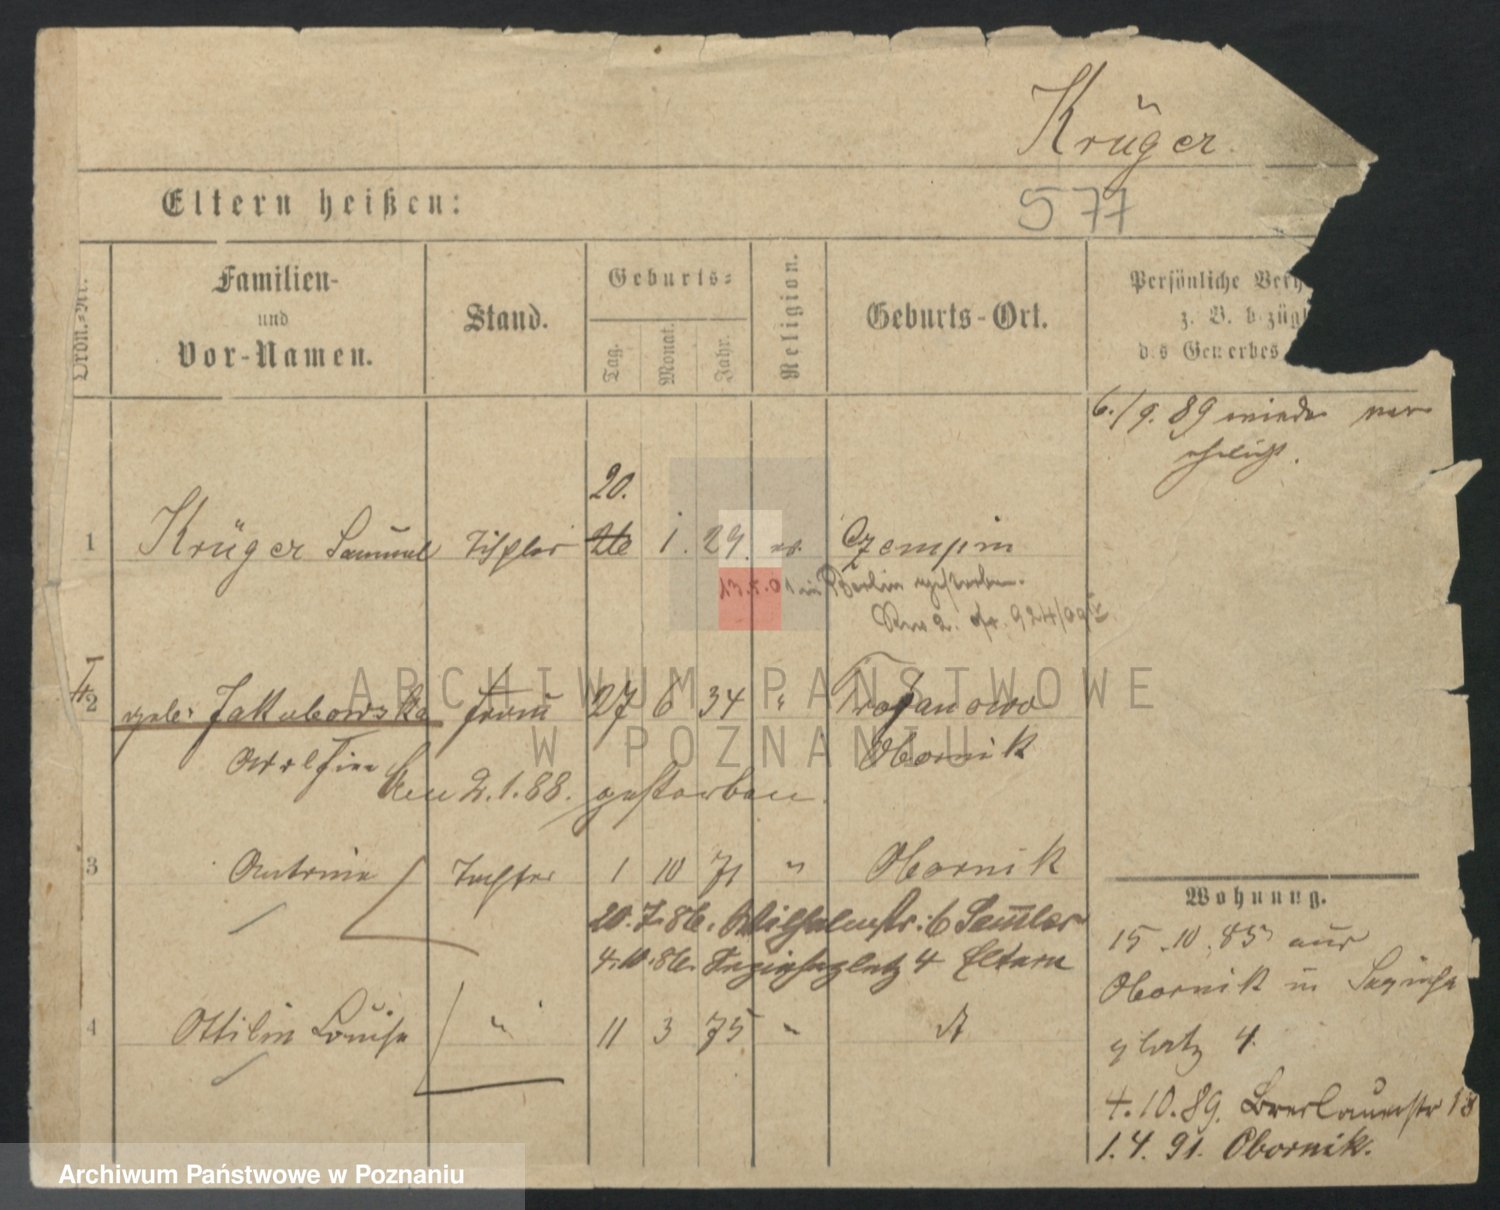 Krüger.
Eltern heißen:
577
Ordn.-Nr.
Familien-
und
Vor-Namen.
Stand.
Geburts-
Tag.
Monat.
Jahr.
Religion.
Geburts-Ort.
Persönliche Verh
z. B. bezügl
des Gewerbes
6./9. 89 wieder ver
ehelicht.
20.
1 Krüger Samuel Tischler 1. 29. ev. Czempin
13.5.01 in Berlin gestorben.
924/09
2 geb. Jakubowska Frau 27 6 34 " Trojanowo
Obornik
den 2.1.88. gestorben.
3 Tochter 1 10 71 " Obornik
20.7.86. Wilhelmstr. 6 Sattler
4.10.86. Sapiehaplatz 4 Eltern
4 Ottilie Louise " 11 3 75 "
Wohnung.
15.10.85 aus
Obornik n Sapieha
platz 4.
4.10.89. Breslauerstr 18
1.4.91. Obornik.
ARCHIWUM PAŃSTWOWE
W POZNANIU
Archiwum Państwowe w Poznaniu